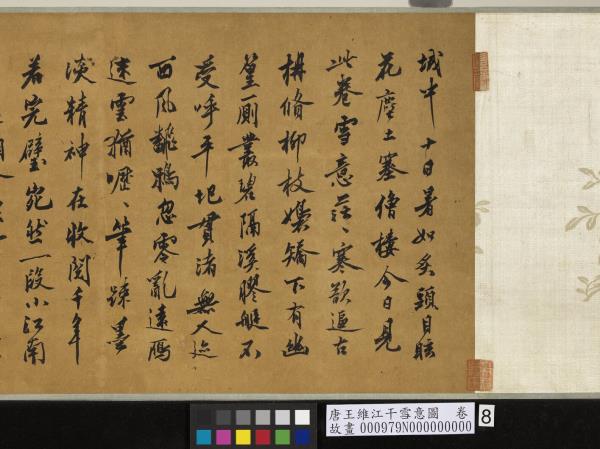 城中十日暑如炙頭目眩
花塵土塞僧樓今日見
此卷雪意茫、寒欲逼古
柟脩柳枝嫋矯下有幽
篁廁叢碧隔溪膠艇不
受呼平圯貫渚無人迹
西風離鴉忽零亂遠鴈
迷雲猶嚦、筆踪墨
淡精神在收閱千年
若完璧宛然一段小江南
唐王維江干雪意圖 卷
故畫 000979N000000000
8